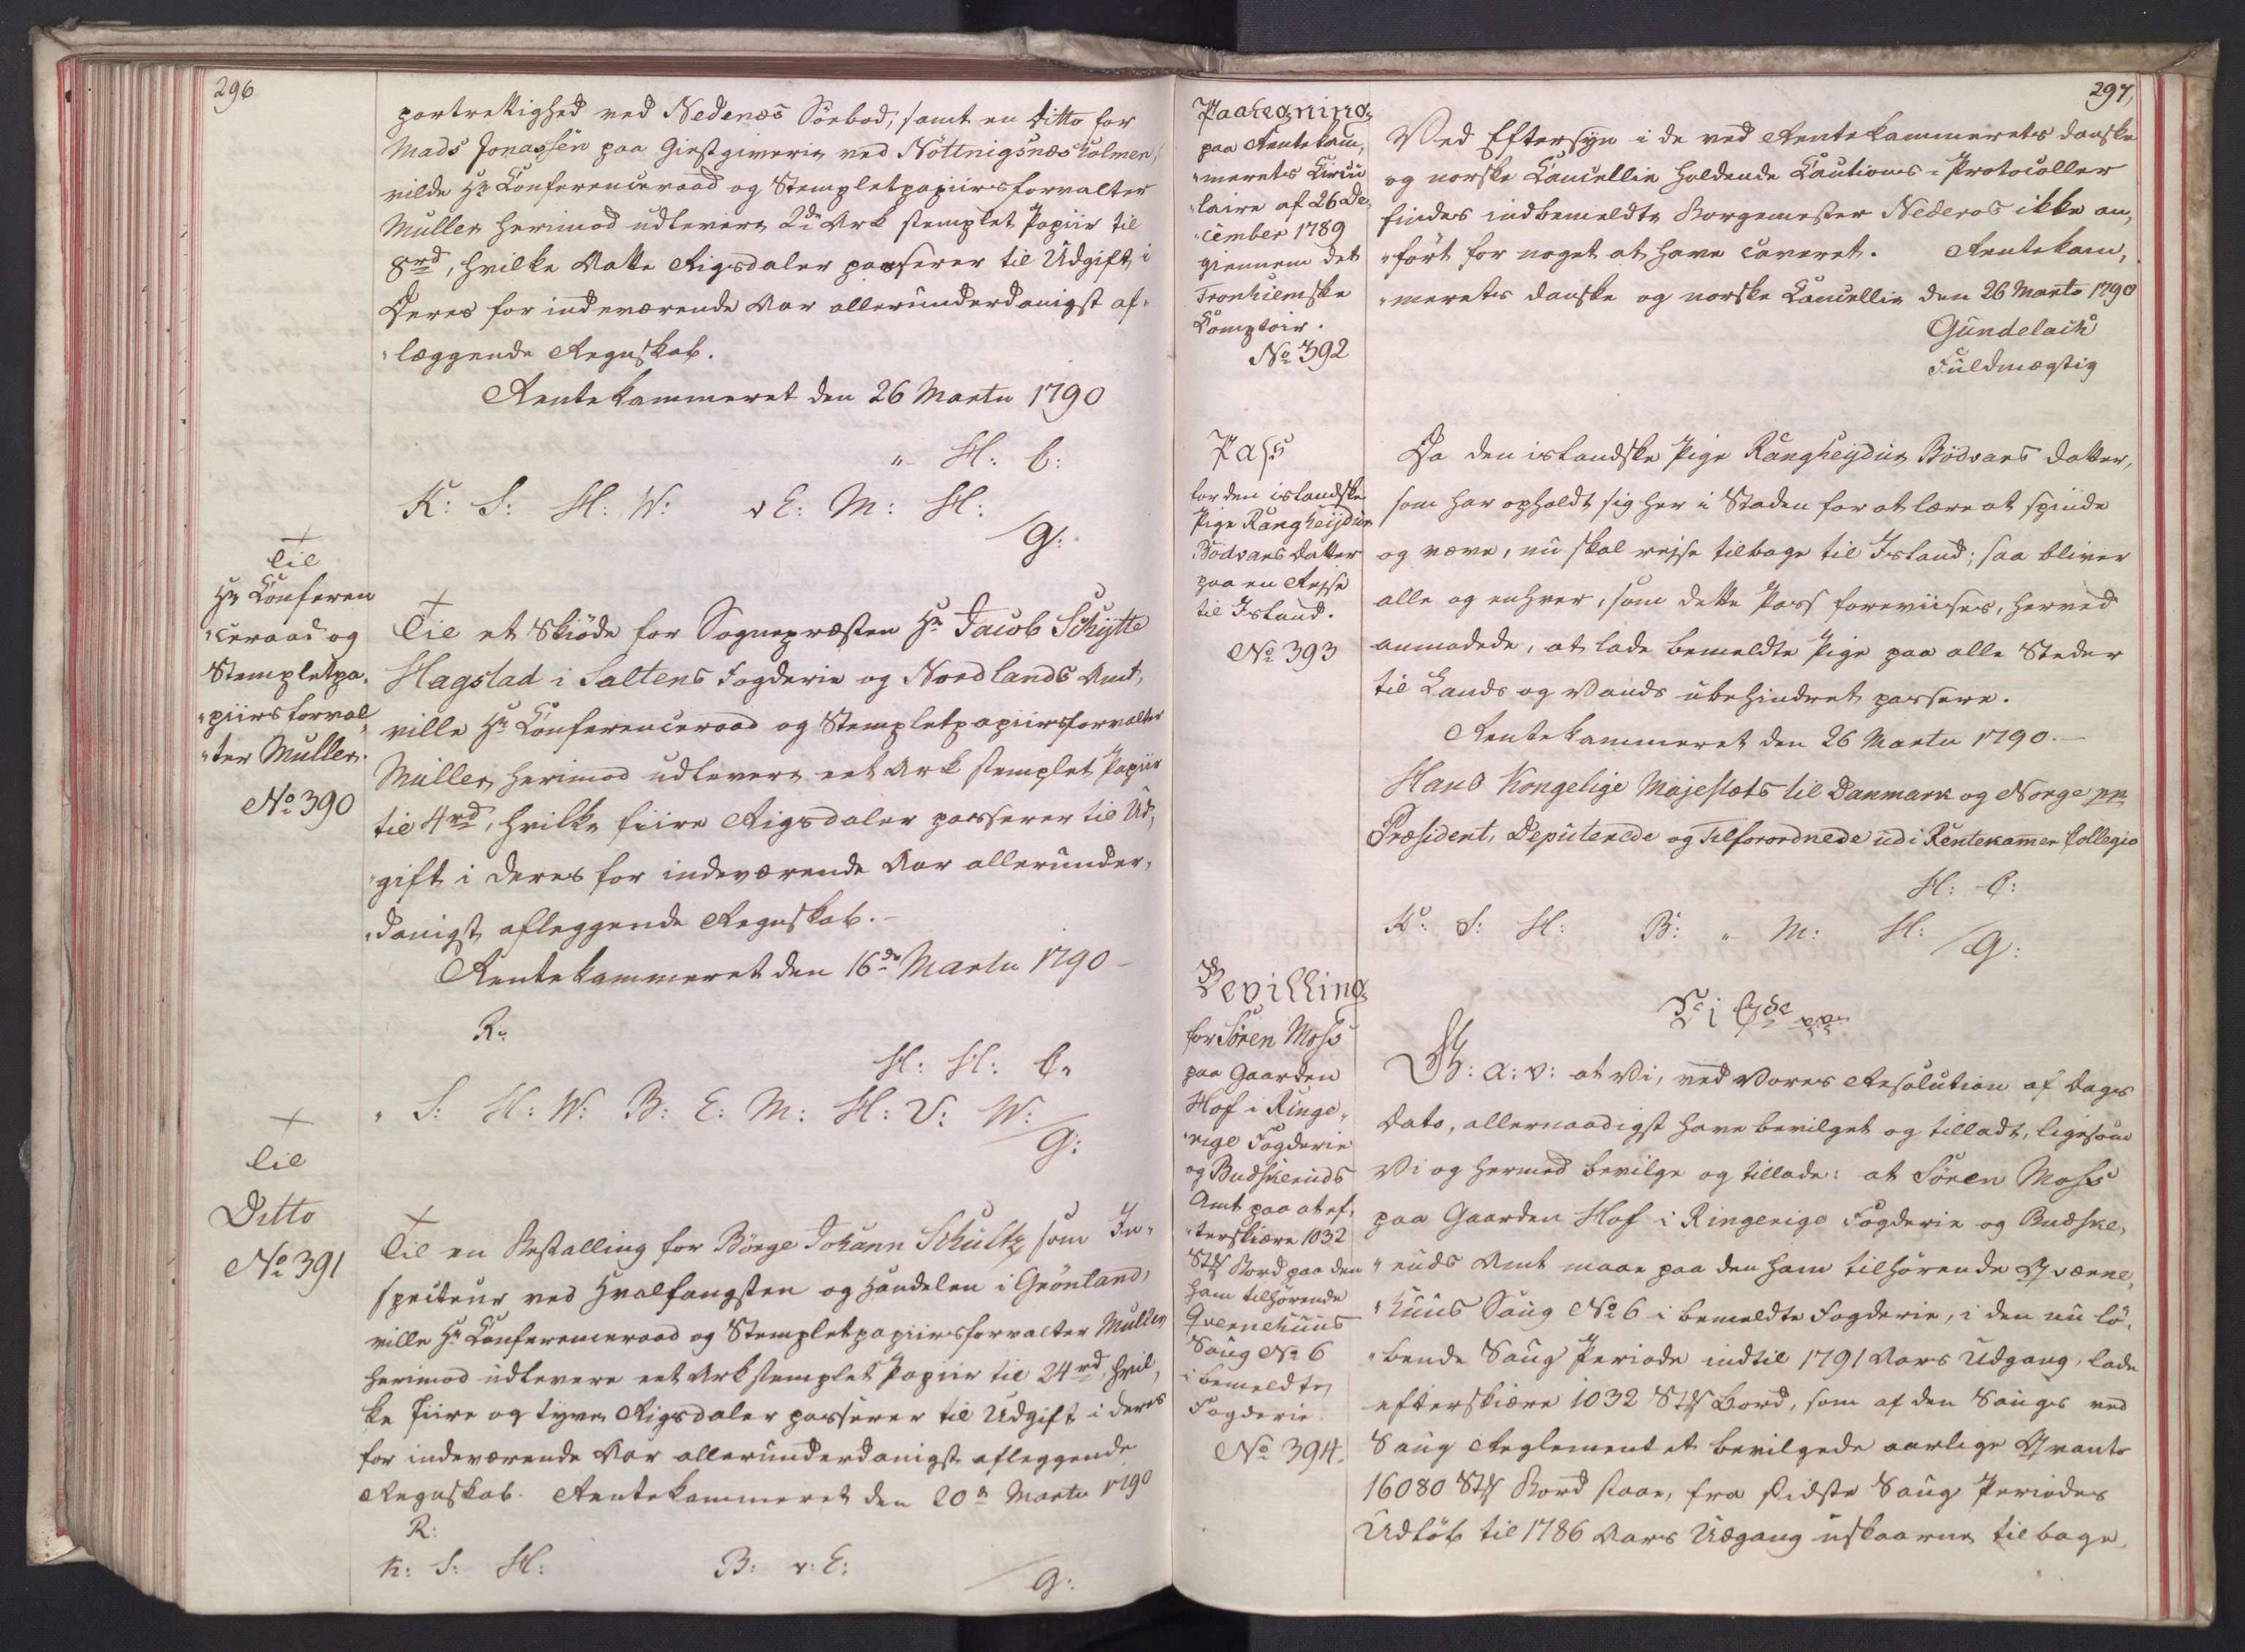 296
portrettighed ved Nedenæs Söebod, samt en ditto for
Mads Jonassen paa Giestgiverie ved Nöttnigsnæs Holmen,
vilde Hr Conferenceraad og Stempletpapiirsforvalter
Müller herimod udlevere 2de Ark stemplet Papiir til
8rd, hvilke Aatte Rigsdaler passerer til Udgift i
Deres for indeværende Aar allerunderdanigst af-
læggende Regnskab.
Rentekammeret den 26 Martii 1790
" H: C:
K: S: H: W: vE: M: H:
G:
+
Til
Hr Conferen
ceraad og
Stempletpa-
piirsforval
ter Müller.
No 390
+
Til et Skiöde for Sognepræsten Hr Jacob Schytte
Hagstad i Saltens Fogderie og Nordlands Amt,
ville Hr Conferenceraad og Stempletpapiirsforvalter
Müller herimod udlevere eet Ark stemplet Papiir
til 4rd, hvilke fiire Rigsdaler passerer til Ud-
gift i Deres for indeværende Aar allerunder-
danigst aflæggende Regnskab.
Rentekammeret den 16de Martii 1790
R:
H: H: C:
" S: H: W: B: E: M: H: V: W:
G:
+
Til
Ditto
No 391
+
Til en Bestalling for Börge Johann Schultz som In-
specteur ved Hvalfangsten og Handelen i Grönland,
ville Hr Conferenceraad og Stempletpapiirsforvalter Müller
herimod udlevere eet Ark stemplet Papiir til 24rd, hvil-
ke fiire og tyve Rigsdaler passerer til Udgift i deres
for indeværende Aar allerunderdanigst aflæggende
Regnskab. Rentekammeret den 20de Martii 1790
R:
K: S: H: B: v: E:
G:
297,
Paategning
paa Rentekam-
merets Circu
laire af 26 De-
cember 1789
giennem det
Tronhiemske
Comptoir.
No 392
Ved Eftersyn i de ved Rentekammerets danske
og norske Cancellie holdende Cautions-Protocoller
findes indbemeldte Borgemester Nederos ikke an-
fört for noget at have caveret. Rentekam-
merets danske og norske Cancellie den 26 Martii 1790
Gundelach
Fuldmægtig
Pass
for den islandske
Pige Rangheijdur
Bödvars Datter
paa en Rejse
til Island.
No 393
Da den islandske Pige Rangheijdur Bödvars Datter,
som har opholdt sig her i Staden for at lære at spinde
og væve, nu skal rejse tilbage til Island; saa bliver
alle og enhver, som dette Pass foreviises, herved
anmodede, at lade bemeldte Pige paa alle Steder
til Lands og Vands ubehindret passere.
Rentekammeret den 26 Martii 1790.
Hans Kongelige Majestæts til Danmark og Norge pp
Præsident, Deputerede og Tilforordnede udi Rentekamer Collegio
H: C:
K: S: H: B: " M: H:
G:
Bevilling
for Sören Moss
paa Gaarden
Hof i Ringe-
rige Fogderie
og Budskeruds
Amt paa at ef-
terskiære 1032
Stk Bord paa den
ham tilhörende
Qvernehuus
Saug No 6
i bemeldte
Fogderie
No 394.
G: A: V: at Vi, ved Vores Resolution af Dags
Dato, allernaadigst have bevilget og tilladt, ligesom
Vi og hermed bevilge og tillade: at Sören Moss
paa Gaarden Hof i Ringerige Fogderie og Budske-
ruds Amt maae paa den ham tilhörende Qværne-
huus Saug No 6 i bemeldte Fogderie, i den nu lö-
bende Saug Periode indtil 1791 Aars Udgang, lade
efterskiære 1032 Stk Bord, som af den Saugs ved
Saug Reglementet bevilgede aarlige Qvanto
16080 Stk Bord staae, fra sidste Saug Periodes
Udlöb til 1786 Aars Udgang uskaarne tilbage.